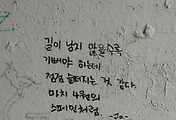 길이 남지 않을수록
기뻐야 하는데
점점 슬퍼지는 것 같다.
마치 4월의
스페인처럼.
-Jo.-